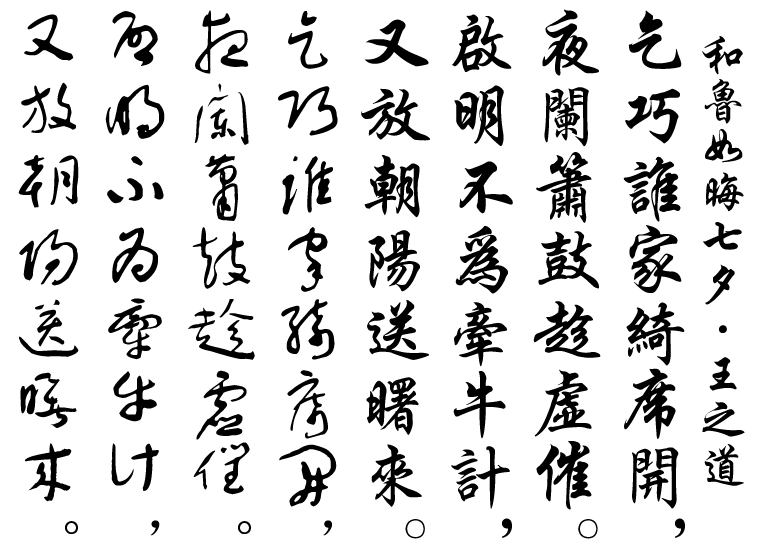 和魯如晦七夕·王之道
乞巧誰家綺席開，
夜闌簫鼓趁虛催。
啟明不為牽牛計，
又放朝陽送曙來。
乞巧誰家綺席開，
夜闌簫鼓趁虛催。
啟明不為牽牛計，
又放朝陽送曙來。